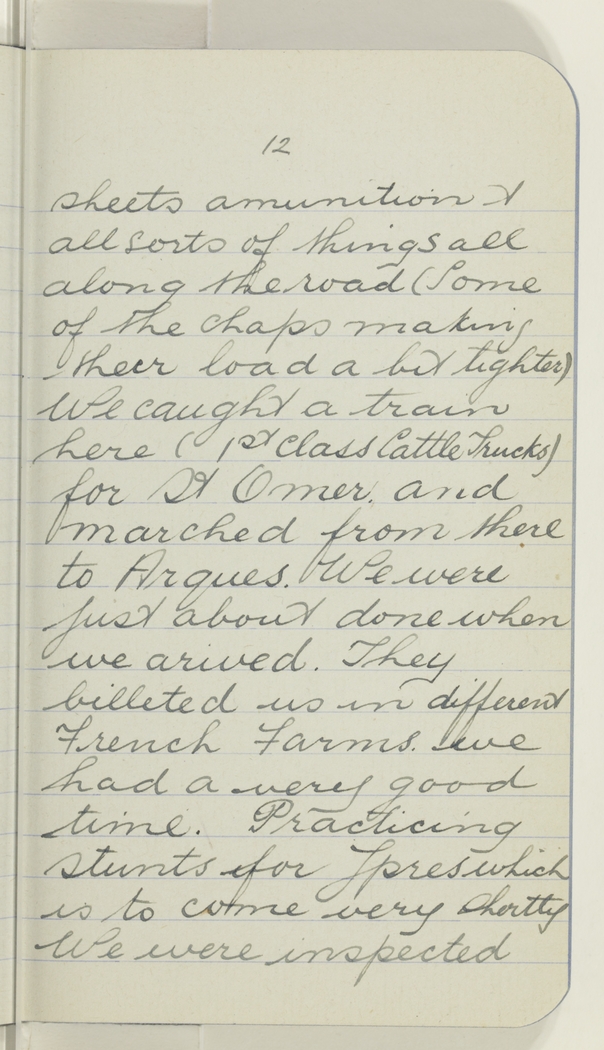 12
sheets amunition &
all sorts of things all
along the road (Some
of the chaps making
their load a bit lighter)
We caught a train
here (1st Class Cattle Trucks)
for St Omer, and
marched from there
to Arques. We were
just about done when
we arived. They
billeted us in different
French Farms. we
had a very good
time. Practicing
stunts for Ypres which
is to come very shortly
We were inspected